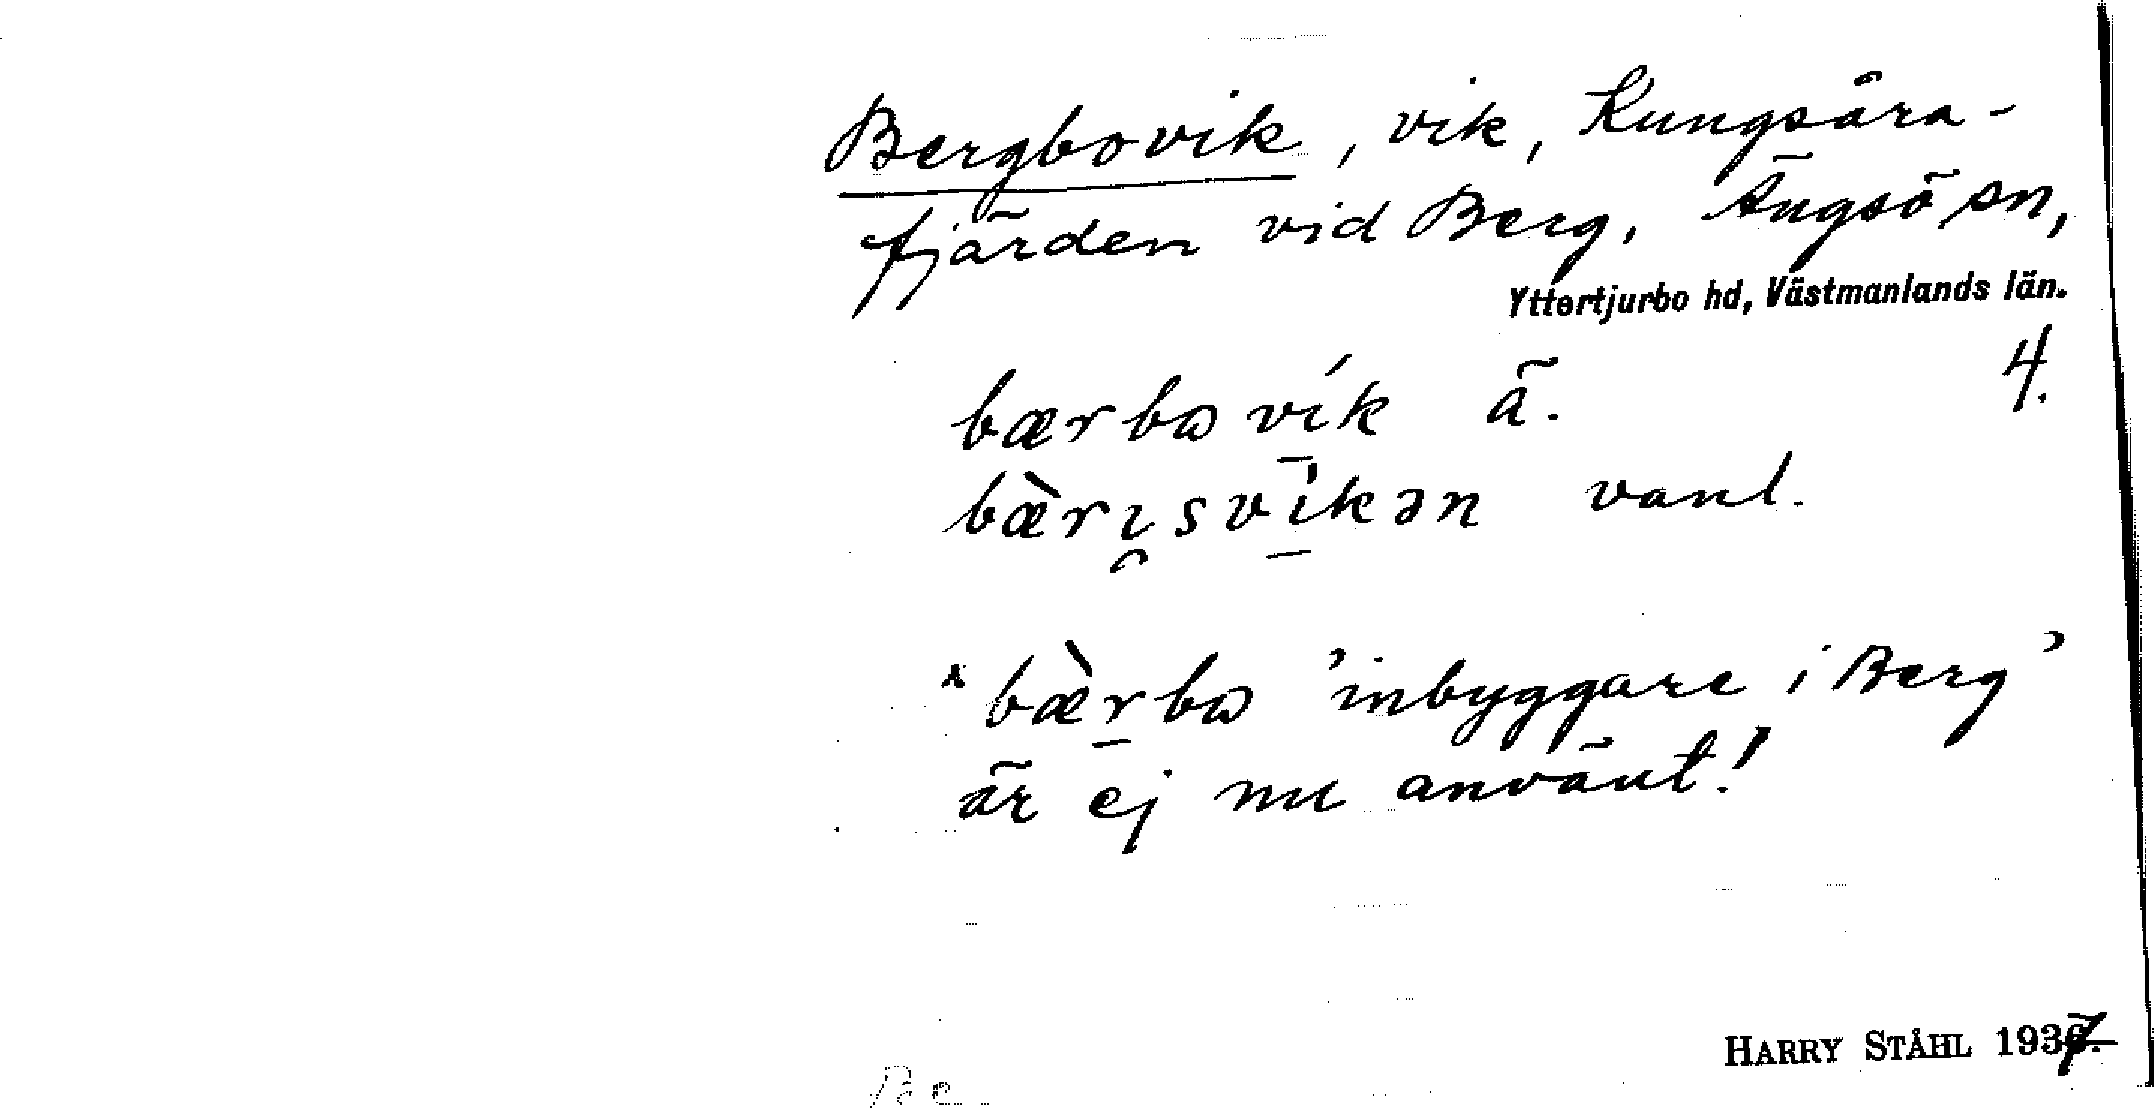 Bergbovik, vik, Kungsåra-
fjärden vid Berg, Ängsö sn,
Yttertjurbo hd, Västmanlands län.
4.
bærbɷvík ä.
bæ̀rɩsvíkən vanl.
*bæ̀rbɷ 'inbyggare i Berg'
är ej nu använt!
HARRY STÅHL 1937.
Be